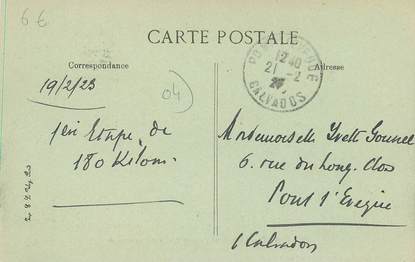 6€
CARTE POSTALE
Correspondance
Adresse
12 40
21-2
CALVADOS
19/2/23
04
1èr Etape de
180 Kilom.
Mademoiselle Yvette
6. rue du long. Clos
Pont l'Evêque
Calvados